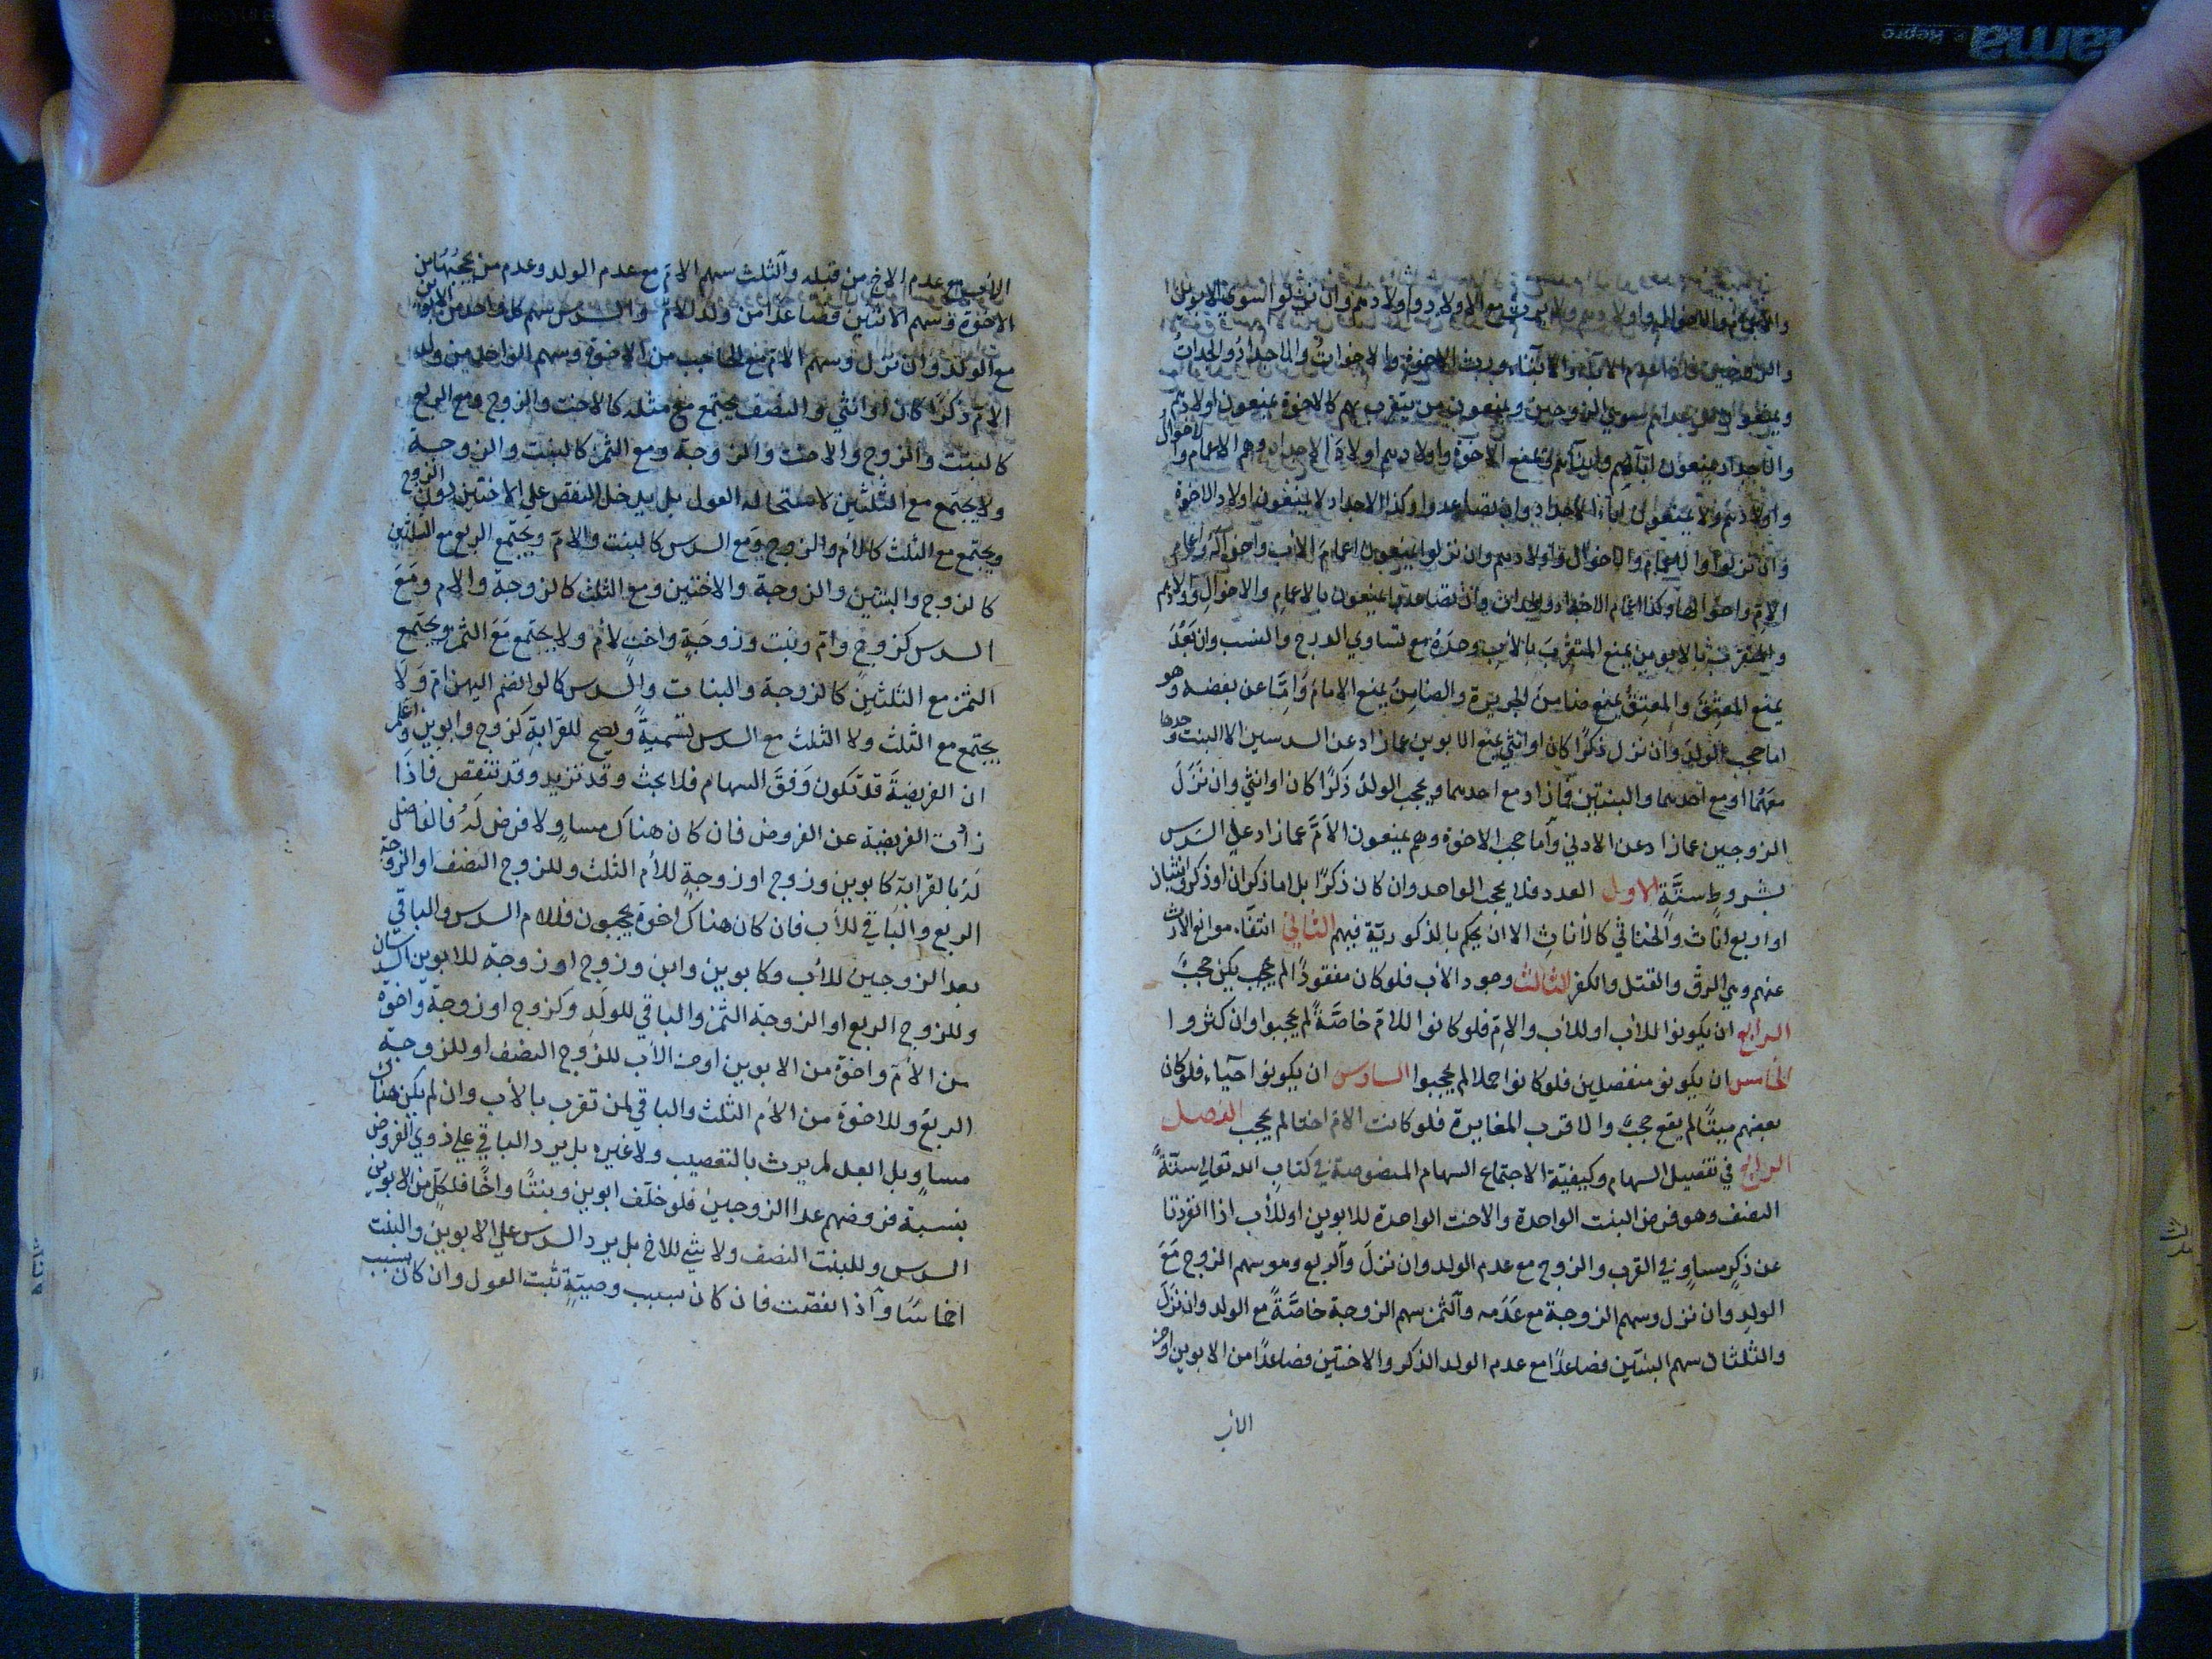 والاعمام والاخوال واولادهم ولا يرث مع الاولاد واولادهم وان نزلوا سوى الابوين
والزوجين فاذا عدم الآباء والابناء ورث الاخوة والاخوات والاجداد والجدات
ويمنعون من عداهم سوى الزوجين ويمنعون من يتقرب بهم كالاخوة يمنعون اولادهم
والاجداد يمنعون آبائهم وابنائهم يمنع الاخوة واولادهم اولاد الاجداد وهم الاعمام والاخوال
واولادهم ولا يمنعون آباء الاجداد وان تصاعدوا وكذا الاجداد لا يمنعون اولاد الاخوة
وان نزلوا والاعمام والاخوال واولادهم وان نزلوا يمنعون اعمام الاب واخواله واعمام
الام واخوالها وكذا اعمام الاجداد والجدات وان تصاعدوا يمنعون بالاعمام والاخوال واولادهم
والمتقرب بالابوين يمنع المتقرب بالاب وحده مع تساوي الدرج والنسب وان بعد
يمنع المعتق والمعتق يمنع ضامن الجريرة والضامن يمنع الامام وامّا عن بعضه وهو
اما حجب الولد وان نزل ذكرًا كان او انثي يمنع الابوين عما زاد عن السدسين الا البنت وحدها
معهما او مع احدهما والبنتين فما زاد مع احدهما ويحجب الولد ذكرًا كان او انثي وان نزل
الزوجين عما زاد عن الادني وأما حجب الاخوة وهم يمنعون الامّ عما زاد علي السدس
بشروط ستّة الاول العدد فلا يحجب الواحد وان كان ذكرًا بل اما ذكران او ذكر وانثيان
او اربع اناث والخناثي كالاناث الا ان يحكم بالذكوريّة فيهم الثاني انتفاء موانع الارث
عنهم وهي الرق والقتل والكفر الثالث وجود الاب فلو كان مفقودًا لم يحجب يكن حجبً
الرابع ان يكونوا للاب او للاب والام فلو كانوا للام خاصّةً لم يحجبوا وان كثروا
الخامس ان يكونو منفصلين فلو كانوا حملا لم يحجبوا السادس ان يكونوا احياء فلو كان
بعضهم ميتًا لم يقع حجب والاقرب المغايرة فلو كانت الام اختا لم يحجب الفصل
الرابع في تفصيل السهام وكيفيّة الاجتماع السهام المنصوصة في كتاب الله تعالي ستّةً
النصف وهو فرض البنت الواحدة والاخت الواحدة للابوين او للأب اذا انفردتا
عن ذكرٍ مساوٍ في القرب والزوج مع عدم الولد وان نزل وآلربع وهو سهم الزوج مع
الولد وان نزل وسهم الزوجة مع عدمه وآلثمن سهم الزوجة خاصّةً مع الولد وان نزل
والثلثان سهم البنتين فصاعدًا مع عدم الولد الذكر والاختين فصاعدًا من الابوين او من
الاب
الأب مع عدم الاخ من قبله وآلثلث سهم الامّ مع عدم الولد وعدم من يحجبها من
الاخوة وسهم الاثنين فصاعدًا من ولد الامّ والسدس سهم كل واحد من الابوين
مع الولد وان نزل وسهم الام مع الحاجب من الاخوة وسهم الواحد من ولد
الامّ ذكرًا كان او انثي والنصف يجتمع مع مثله كالاخت والزوج ومع الربع
كالبنت والزوج والاخت والزوجة ومع الثمن كالبنت والزوجة
ولا يجتمع مع الثلثين لاستحالة العول بل يدخل النقص علي الاختين دون الزوج
ويجتمع مع الثلث كالأم والزوج ومع السدس كالبنت والامّ ويجتمع الربع مع الثلثين
كالزوج والبنتين والزوجة والاختين ومع الثلث كالزوجة والام ومع
السدس كزوجٍ وامّ وبنت وزوجةٍ واختٍ لأم ولا يجتمع مع الثمن ويجتمع
الثمن مع الثلثين كالزوجة والبنات والسدس كما لو انضم اليهن امّ ولا
يجتمع مع الثلث ولا الثلث مع السدس تسميةً ويصح للقرابة كزوج وابوين واعلم
ان الفريضة قد تكون وفق السهام فلا بحث وقد تزيد وقد تنقص فاذا
زادت الفريضة عن الفروض فان كان هناك مساوٍ ولا فرض له فالفاضل
له بالقرابة كابوين وزوج او زوجةٍ للأم الثلث وللزوج النصف او الزوجة
الربع والباقي للأب فان كان هناك اخوة يحجبون فللام السدس والباقي
بعد الزوجين للأب وكابوين وابن وزوج او زوجة للابوين السدسان
وللزوج الربع او الزوجة الثمن والباقي للولد وكزوج او زوجة واخوة
من الأمّ واخوة من الابوين او من الأب للزوج النصف او للزوجة
الربع وللاخوة من الأم الثلث والباقي لمن تقرب بالأب وان لم يكن هناك
مساوٍ بل ابعد لم يرث بالتعصيب ولا غيره بل يرد الباقي علي ذوي الفروض
بنسبة فروضهم عدا الزوجين فلو خلّف ابوين وبنتًا واخًا فلكل من الابوين
السدس وللبنت النصف ولا شئ للاخ بل يرد السدس علي الابوين والبنت
اخماسًا وآذا نقصت فان كان بسبب وصيّةٍ ثبت العول وان كان بسبب